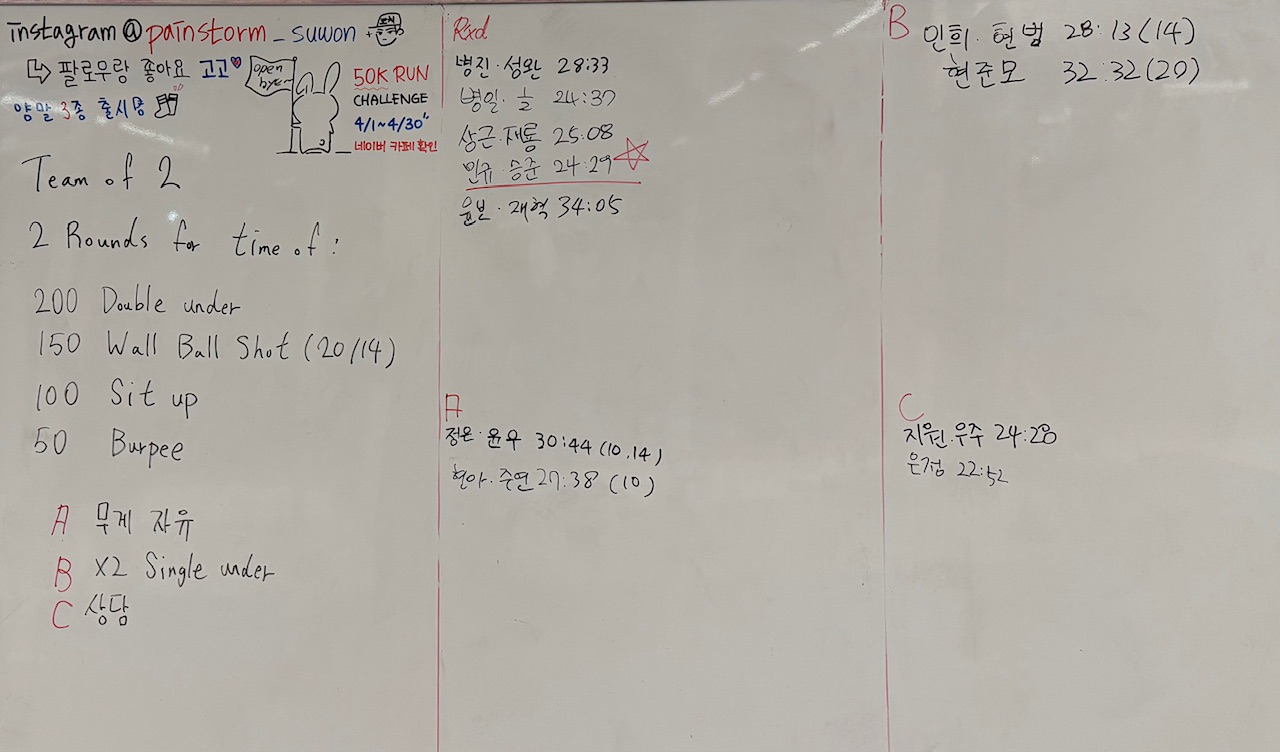 instagram @ painstorm _ suwon
↳ 팔로우랑 좋아요 고고
양말 3종 출시중
open bye~
50K RUN
CHALLENGE
4/1~4/30"
네이버 카페 확인
Team of 2
2 Rounds for time of :
200 Double under
150 Wall Ball Shot (20/14)
100 Sit up
50 Burpee
A 무게 자유
B X2 Single under
C 상담
Rxd
병진·성완 28:33
병일·늘 24:37
상근·재룡 25:08
민규·승준 24:29
윤보·재혁 34:05
A
정은·윤우 30:44 (10,14)
현아·주연 27:38 (10)
B
민희·현범 28:13 (14)
현준모 32:32 (20)
C
지원·우주 24:28
은정 22:52